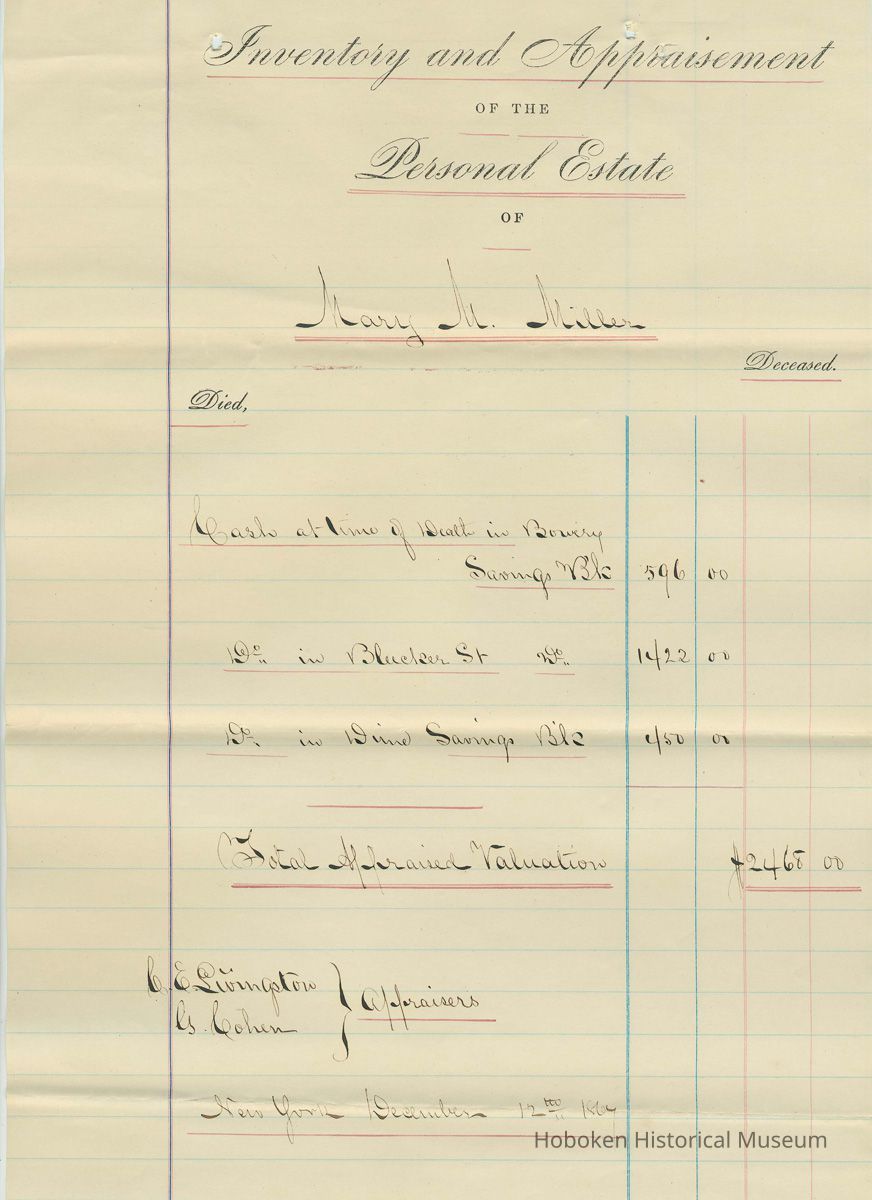 Inventory and Appraisement
OF THE
Personal Estate
OF
Mary M. Miller
Deceased.
Died,
Cash at time of Death in Bowery
Savings Bk 596 00
Do in Bleecker St Do 1422 00
Do in Dime Savings Bk 450 00
Total Appraised Valuation $2468 00
C. E. Livingston
G. Cohen } Appraisers
New York December 12th 1867
Hoboken Historical Museum